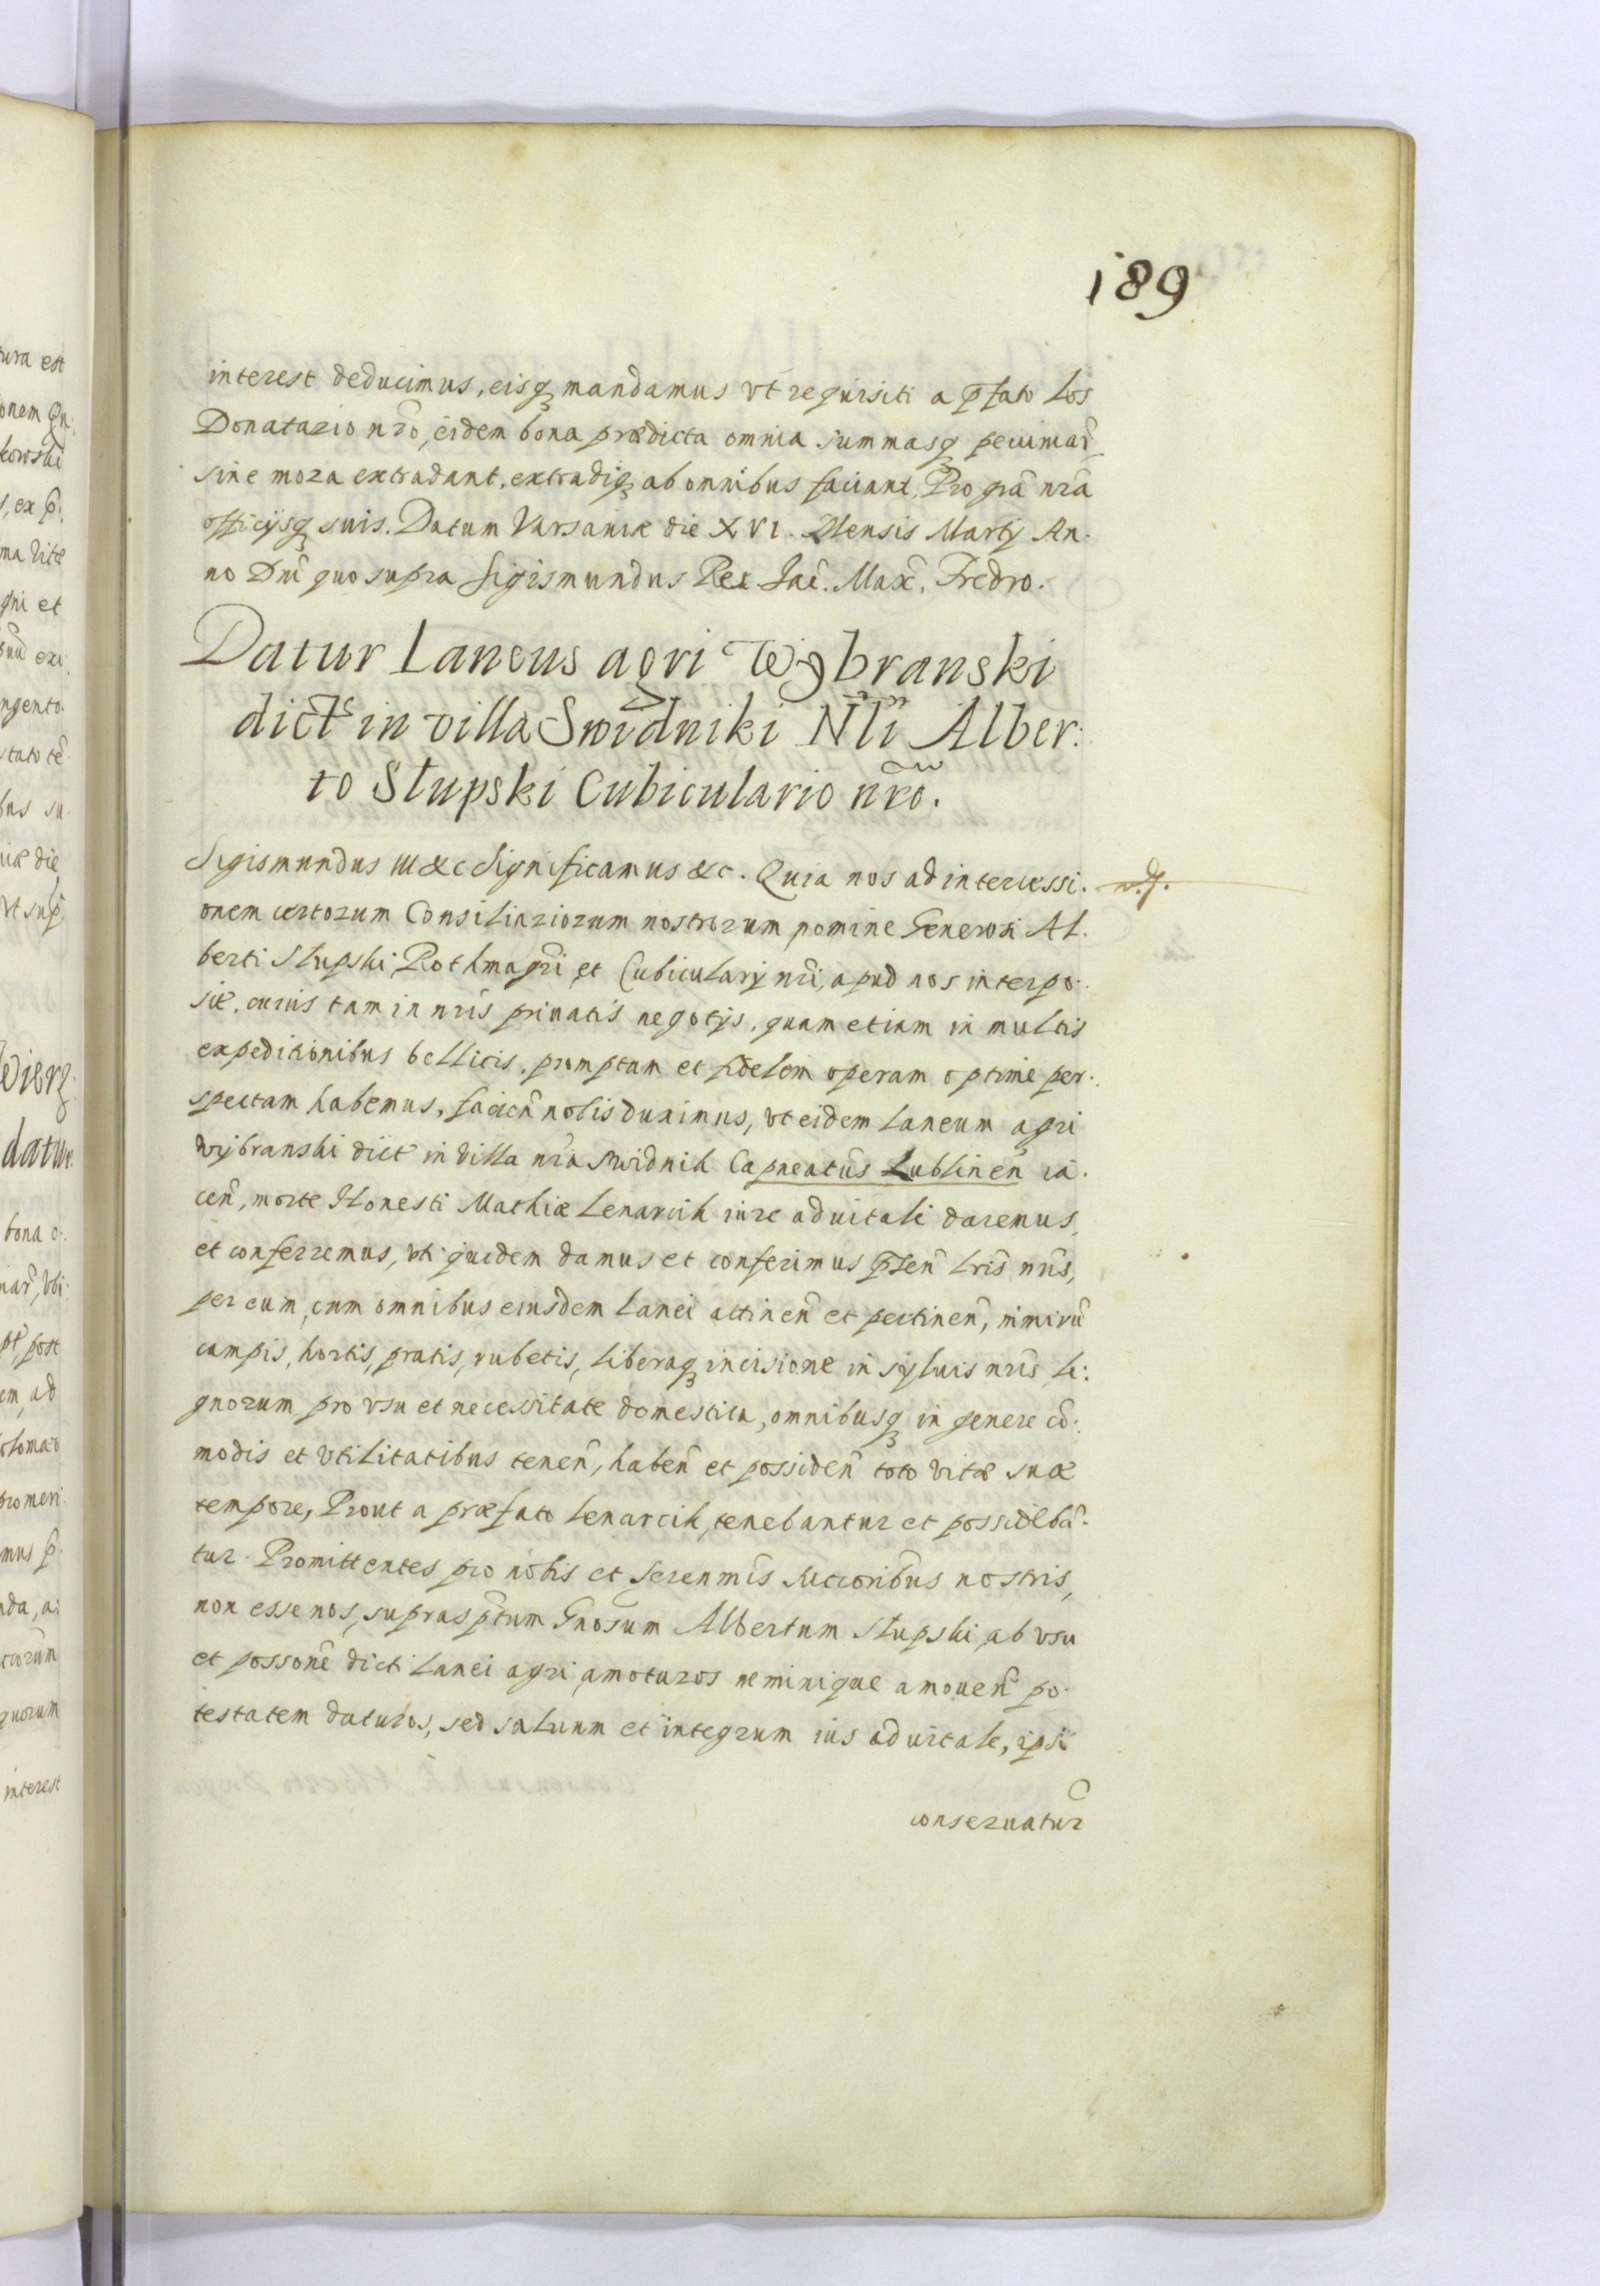 189
interest deducimus, eisq mandamus vt requisiti a p̃fato
Donatario nr̃o, eidem bona prædicta omnia summasq pecuniar̃
sine mora extradant, extradiq ab omnibus faciant, Pro gr̃a nr̃a
officijsq suis. Datum Varsaviæ die XVI. Mensis Martij An-
no Dnĩ quo supra Sigismundus Rex Jac̃. Max̃. Fredro.
Datur Laneus agri Wybranski
dict̃s in villa Swidniki Nl̃i Alber:
to Słupski Cubiculario nr̃o.
Sigismundus III &c Significamus &c. Quia nos ad intercessi-
onem certorum Consiliariorum nostrorum nomine Generosi Al-
berti Słupski Rothmagr̃i et Cubicularij nr̃i, apud nos interpo-
sitæ, cuius tam in nr̃is priuatis negotijs, quam etiam in multis
expeditionibus bellicis, promptam et fidelem operam optime per-
spectam habemus, facien̄ nobis duximus, vt eidem Laneum agri
wybranski dict̃ in villa nr̃a Swidnik Capneatus̃ Lublinen̄ ia-
cen̄, morte Honesti Mathiæ Lenarcik iure aduitali daremus,
et conferremus, vti quidem damus et conferimus p̃sen̄ Lr̃is nr̃is,
per eum, cum omnibus eiusdem Lanei attinen̄ et pertinen̄, nimirũ
campis, hortis, pratis, rubetis, liberaq incisione in syluis nr̃is li:
gnorum pro vsu et necessitate domestica, omnibusq in genere cõ-
modis et vtilitatibus tenen̄, haben̄ et possiden̄ toto vitæ suæ
tempore, Prout a præfato Lenarcik, tenebantur et possidebã-
tur. Promittentes pro nobis et Serenm̃is Succr̃oribus nostris,
non esse nos, suprasp̃tum Gn̄osum Albertum Słupski ab vsu
et posson̄e dicti Lanei agri amoturos neminique amouen̄ po-
testatem daturos, sed saluum et integrum ius aduitale, ipsi
conseruatur̃